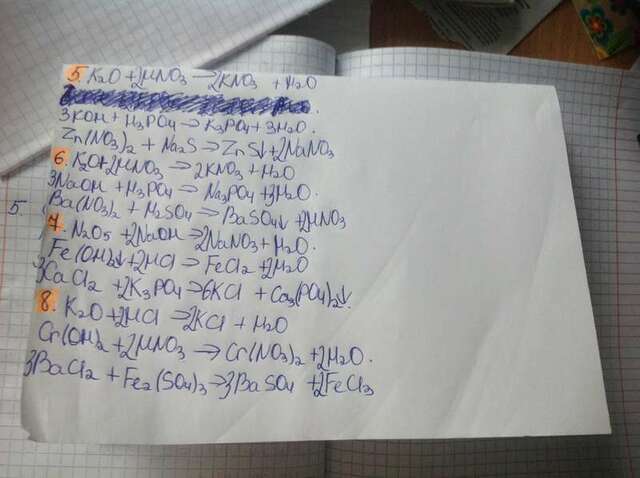 5. K2O + 2HNO3 → 2KNO3 + H2O
3KOH + H3PO4 → K3PO4 + 3H2O.
Zn(NO3)2 + Na2S → ZnS↓ + 2NaNO3
6. K2O + 2HNO3 → 2KNO3 + H2O
3NaOH + H3PO4 → Na3PO4 + 3H2O.
5 Ba(NO3)2 + H2SO4 → BaSO4↓ + 2HNO3
7. N2O5 + 2NaOH → 2NaNO3 + H2O.
Fe(OH)2↓ + 2HCl → FeCl2 + 2H2O
3CaCl2 + 2K3PO4 → 6KCl + Ca3(PO4)2↓.
8. K2O + 2HCl → 2KCl + H2O
Cr(OH)2 + 2HNO3 → Cr(NO3)2 + 2H2O.
3BaCl2 + Fe2(SO4)3 → 3BaSO4 + 2FeCl3